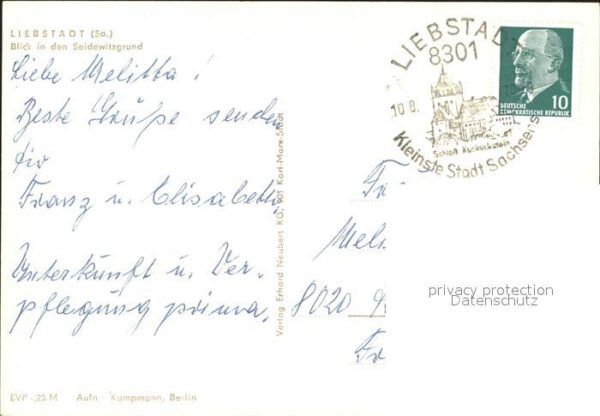 LIEBSTADT (Sa.)
Blick in den Seidewitzgrund
Liebe Melitta!
Beste Grüße senden
Dir
Franz u. Elisabeth,
Unterkunft u. Ver-
pflegung prima,
EVP -,25 M Aufn. Kampmann, Berlin
Verlag Erhard Neubert KG, Karl-Marx-Stadt
LIEBSTADT
8301
10.8.
Schloß Kuckuckstein
Kleinste Stadt Sachsens
10
DEUTSCHE
DEMOKRATISCHE REPUBLIK
Fr
Meli
8020
privacy protection
Datenschutz